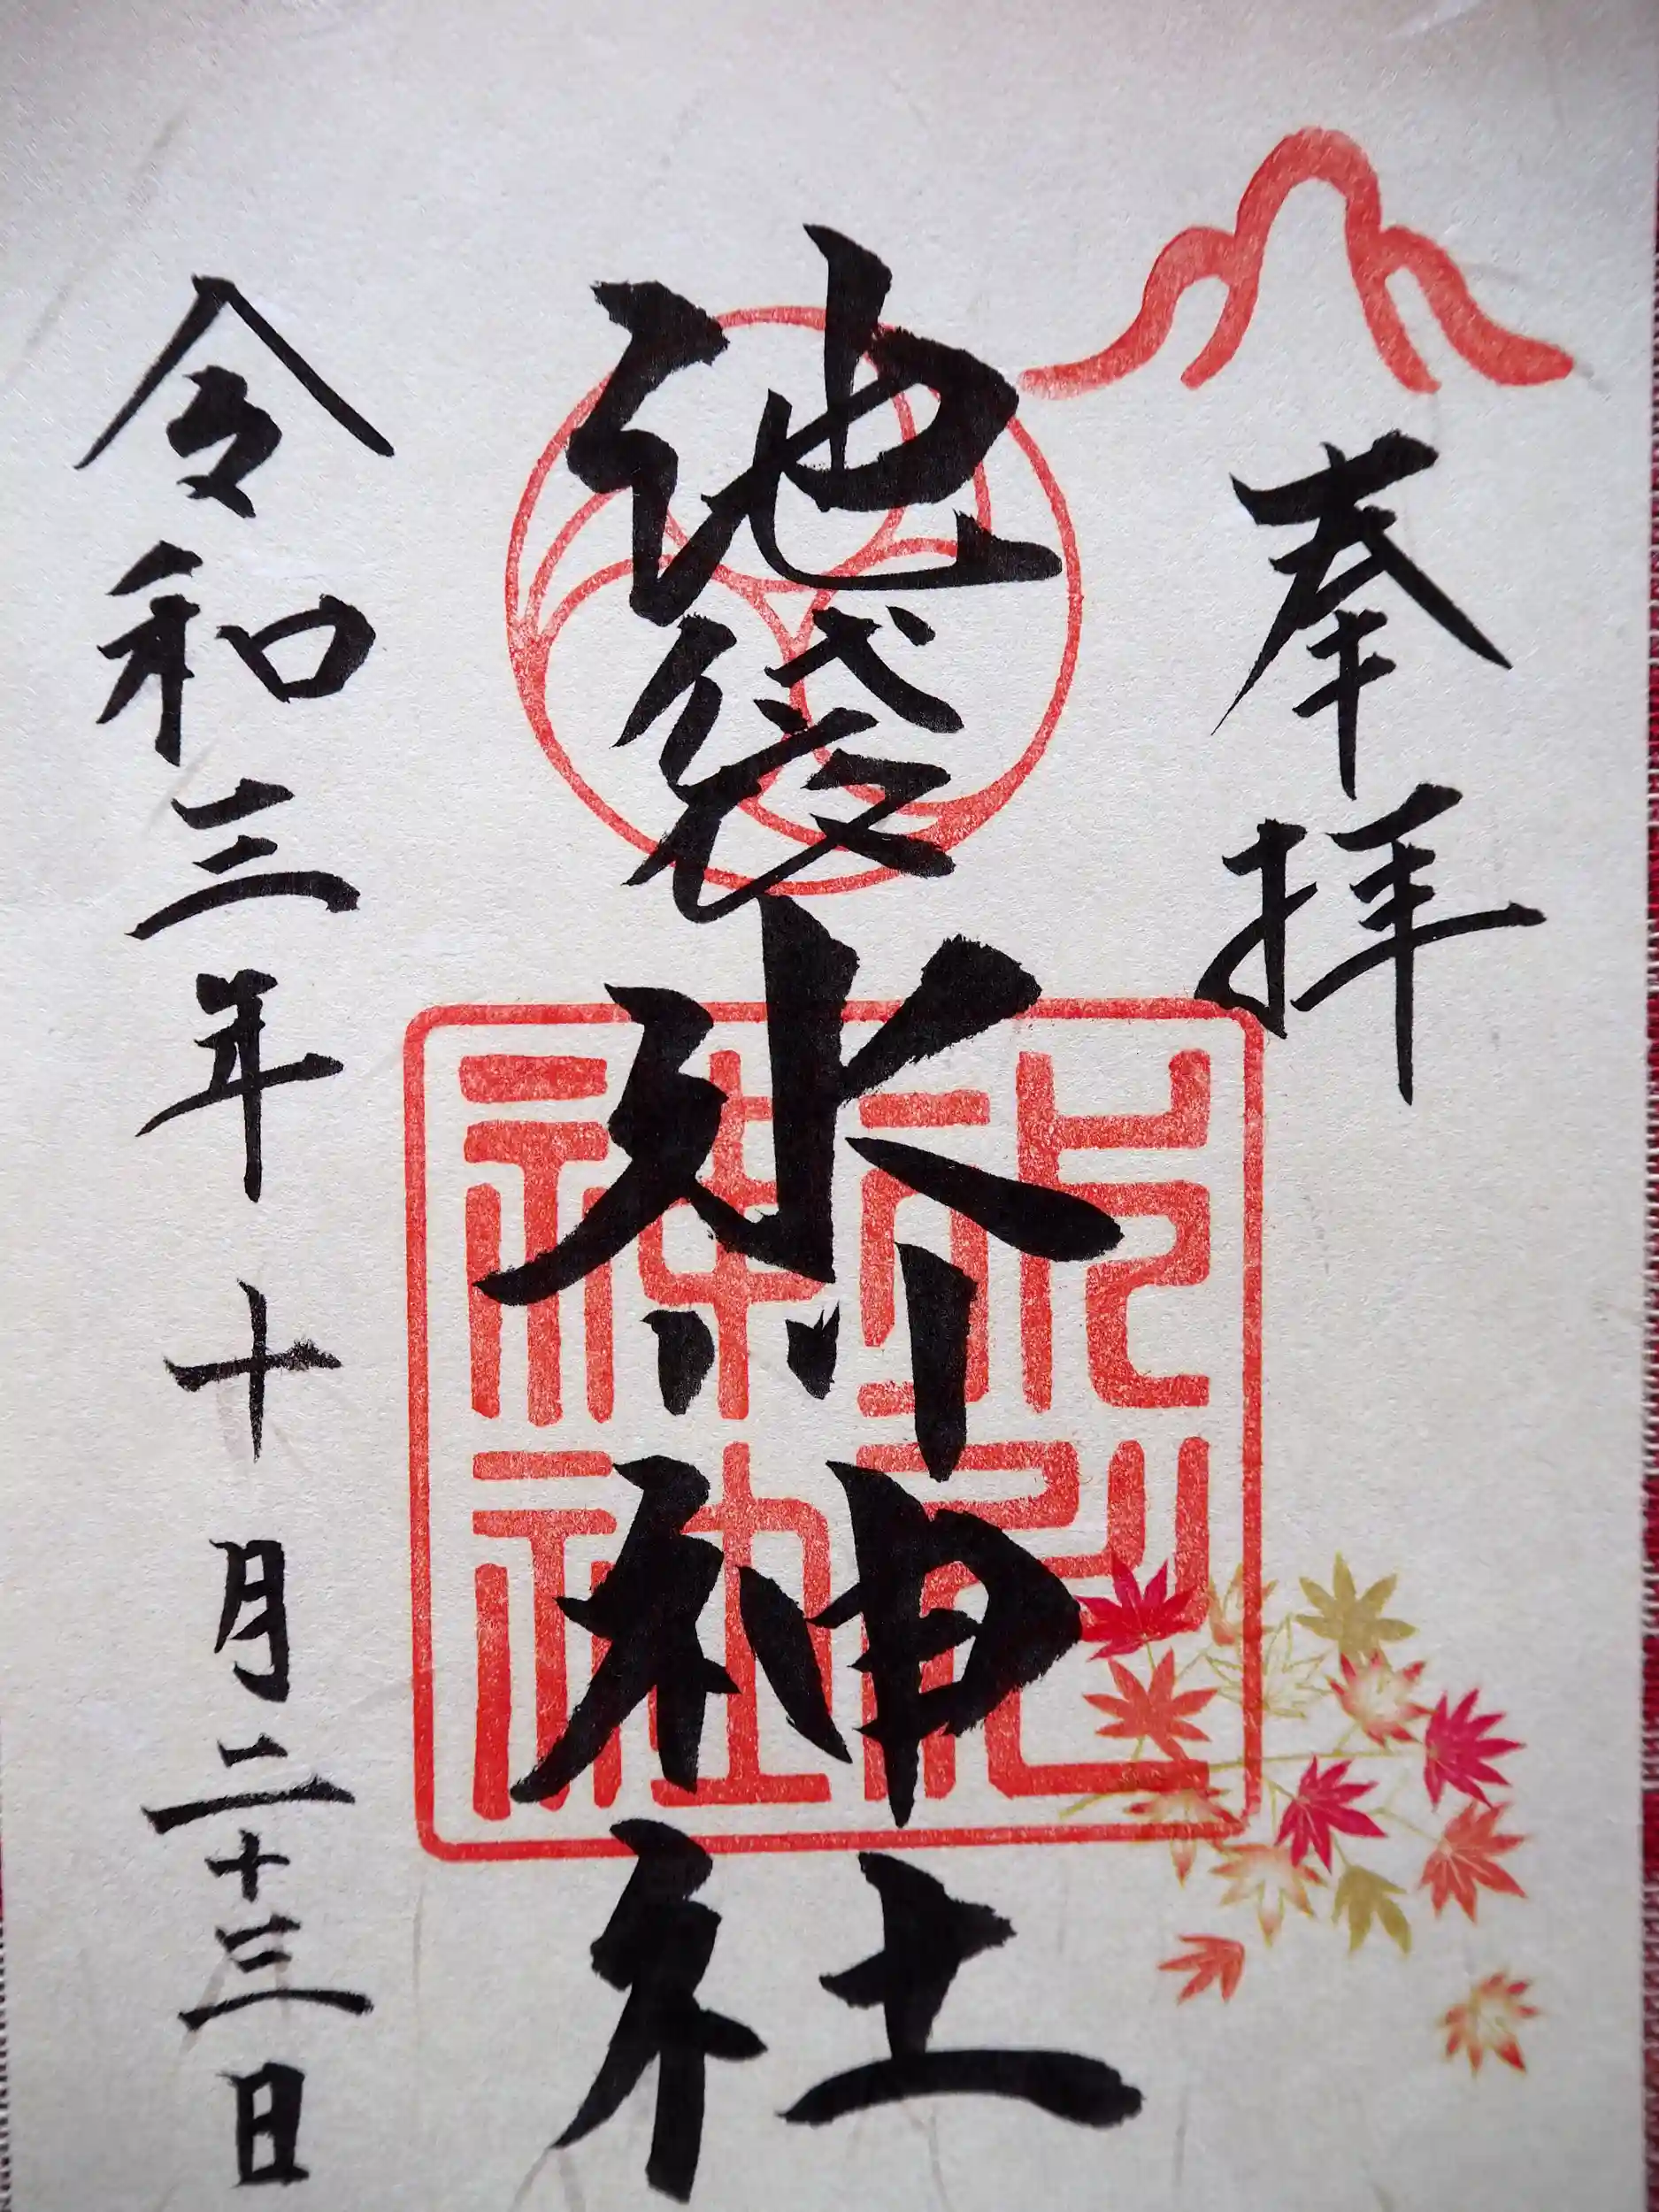 奉拝
池袋氷川神社
令和三年十月二十三日